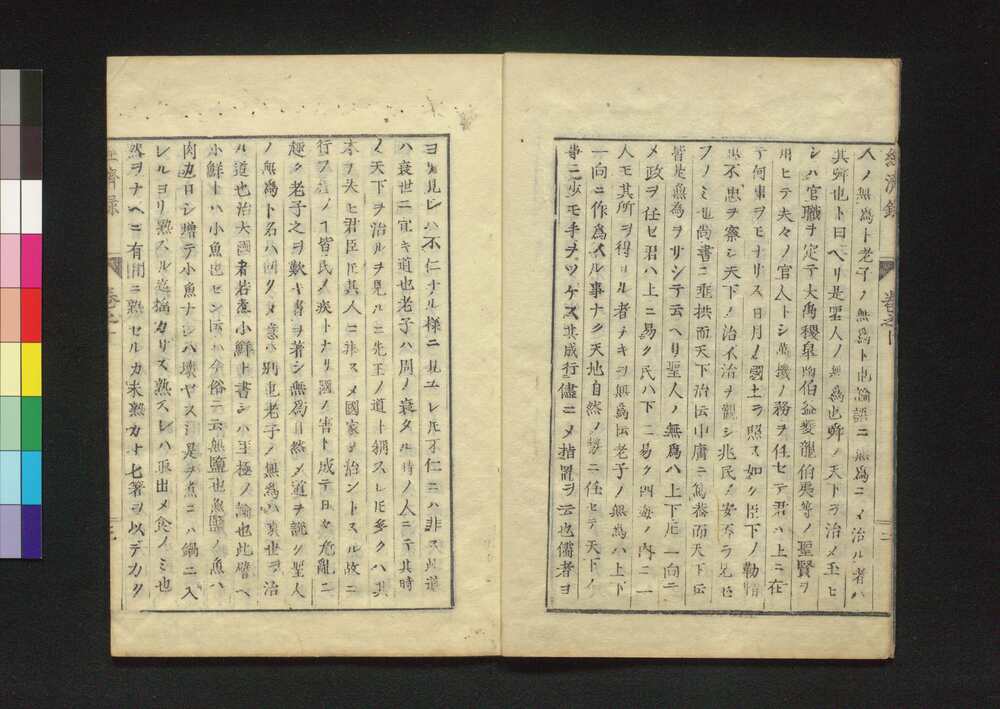 人ノ無爲ト老子ノ無爲ト也論語ニ無爲ニメ治ル者ハ
其舜也ト曰ヘリ是聖人ノ無爲也舜ノ天下ヲ治メ玉ヒ
シハ官職ヲ定テ大禹稷皐陶伯益夔龍伯夷等ノ聖賢ヲ
用ヒテ夫々ノ官人トシ萬機ノ務ヲ任セテ君ハ上ニ在
テ何事ヲモナサス日月ノ國土ヲ照ス如ク臣下ノ勤惰
思不思ヲ察シ天下ノ治不治ヲ觀シ兆民ノ安不
フノミ也尚書ニ垂拱而天下治云中庸ニ篤恭而天下云
皆是無為ヲサシテ云ヘリ聖人ノ無爲ハ上下圧一向ニ
メ政ヲ任セ君ハ上ニ易ク民ハ下ニ易ク四海ノ内ニ一
人モ其所ヲ得サル者ナキヲ無爲云老子ノ無爲ハ上下
一向ニ作爲スル事ナク天地自然ノ勢ニ任セテ天下ノ
事ニ少モ手ヲツケズ其成行儘ニメ措置ヲ云也儒者ヨ
リ見レハ不仁ナル様ニ見ユレ圧不仁ニハ非ス此道
ハ衰世ニ宜キ道也老子ハ周ノ衰タル時ノ人ニテ其時
ノ天下ヲ治ルヲ見ルニ先王ノ道ト稱スレ圧多クハ其
本ヲ失ヒ君臣圧其人ニ非スメ國家ヲ治ントスル故ニ
行フ所ノ皆民ノ疾トナリ國ノ害ト成テ日々危亂ニ
極ク老子之ヲ歎キ書ヲ著シ無爲自然ノ道ヲ説ク聖人
ノ無爲ト名ハ同クメ意ハ別也老子ノ無爲ハ衰世ヲ治
ル道也治大國者若煮小鮮ト書シハ至極ノ諭也此譬ヘ
小鮮トハ小魚也セン云ハ今俗ニ云無鹽也無鹽ノ魚ハ
肉丸ロシ増テ小魚ナレハ壊ヤスシ是ヲ煮ニハ鍋ニ入
レルヨリ熟スル迄搖カサス熟スレハ取出メ食ノミ也
然ヲナヘニ有間ニ熟セルカ未熟カナト七著ヲ以テカク
經濟錄
卷之十